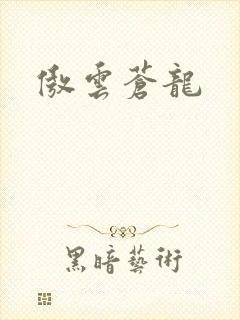 傲雲蒼龍
黑暗藝術